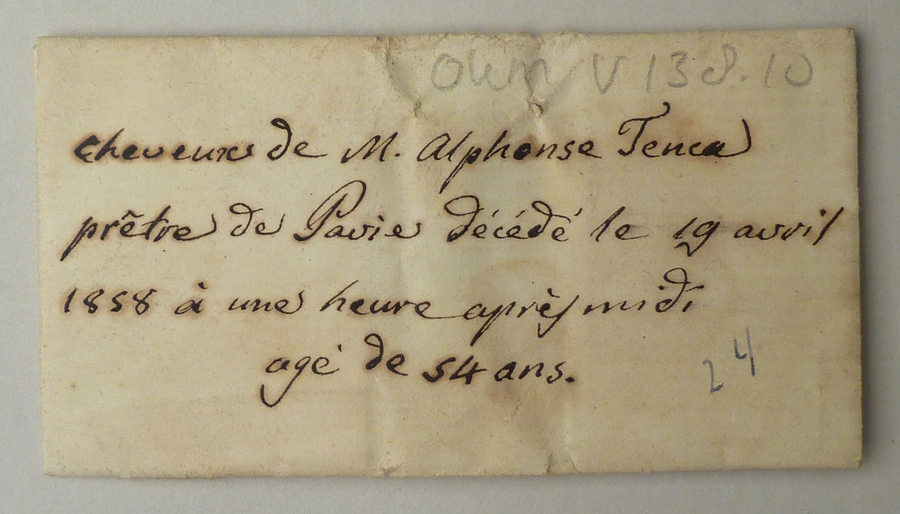 OHM V 138.10
cheveux de M. Alphonse Tenca
prêtre de Pavie décédé le 19 avril
1858 à une heure après midi
agé de 54 ans.
24